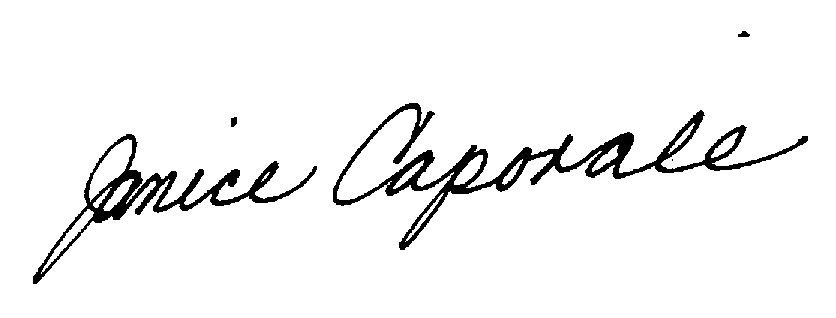 Janice Caporale